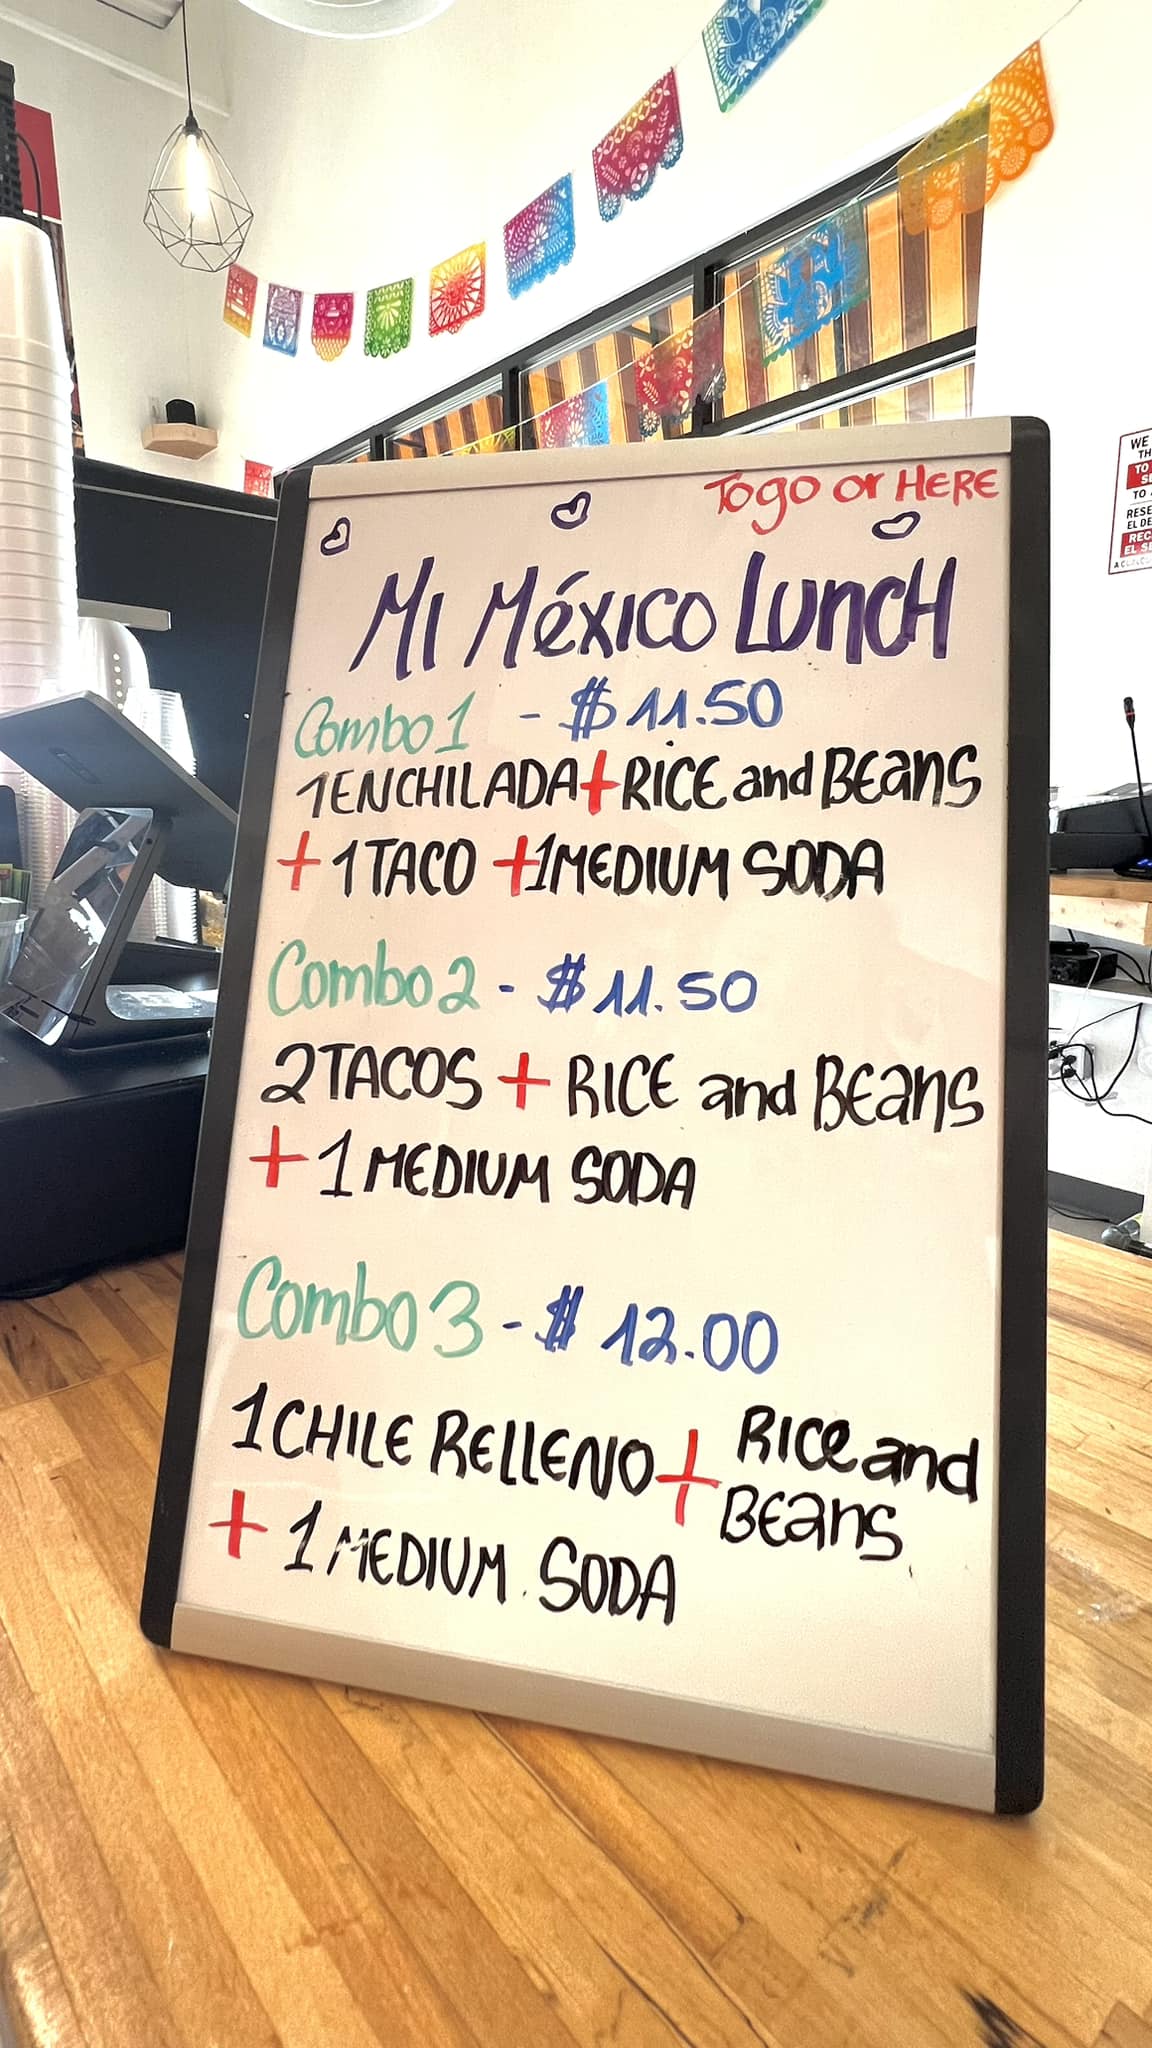 Togo or HERE
MI México LUNCH
Combo 1 - $11.50
1 ENCHILADA + RICE and BEans
+ 1 TACO + 1 MEDIUM SODA
Combo 2 - $11.50
2 TACOS + RICE and BEans
+ 1 MEDIUM SODA
Combo 3 - $12.00
1 CHILE RELLENO + RICe and
BEans
+ 1 MEDIUM SODA
WE
TO
TO
RESE
EL DE